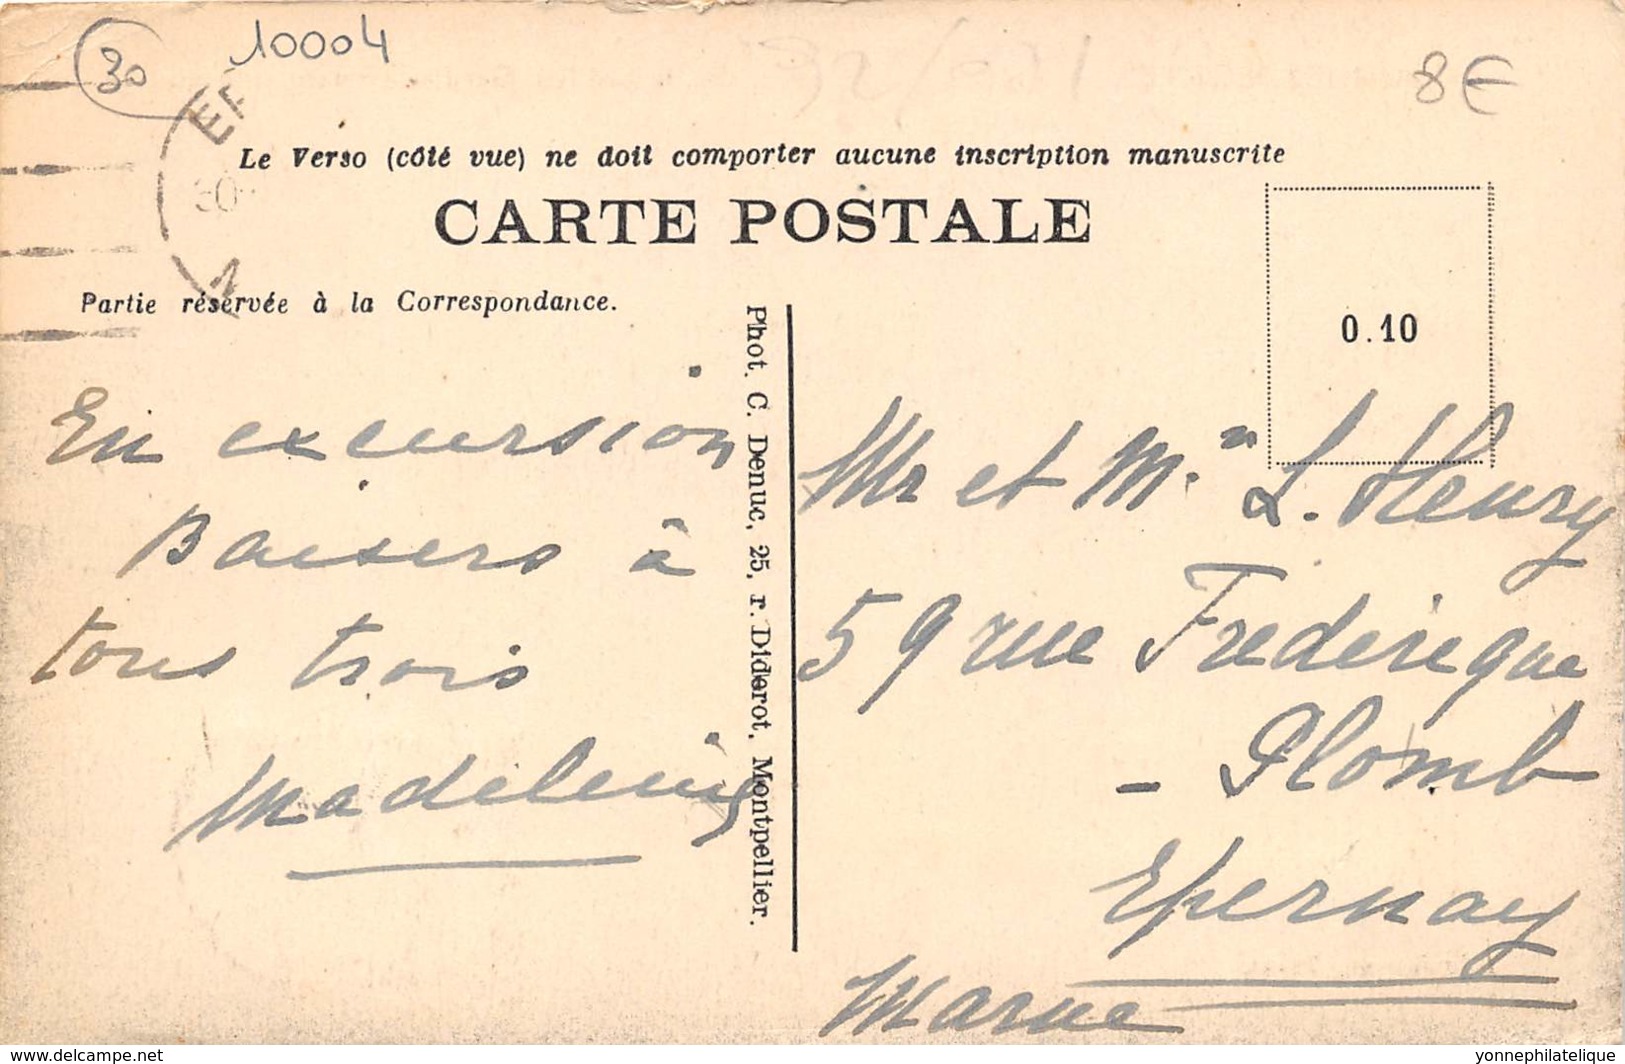 30
10004
8€
Le Verso (côté vue) ne doit comporter aucune inscription manuscrite
CARTE POSTALE
Partie réservée à la Correspondance.
0.10
En excursion
Baisers à
tous trois
Madeleine
Phot. C. Denuc, 25, r. Diderot, Montpellier.
Mr et M. L. Henry
59 rue Frederique
- Plomb
Epernay
Marne
delcampe.net
yonnephilatelique